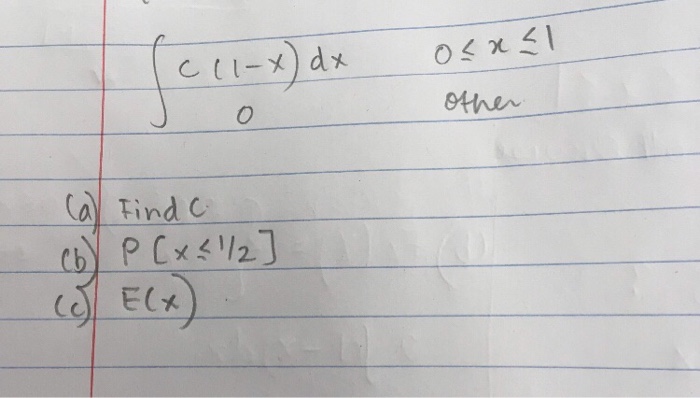 ∫ c(1-x) dx 0 ≤ x ≤ 1
0 other
(a) Find C
(b) P[x ≤ 1/2]
(c) E(x)